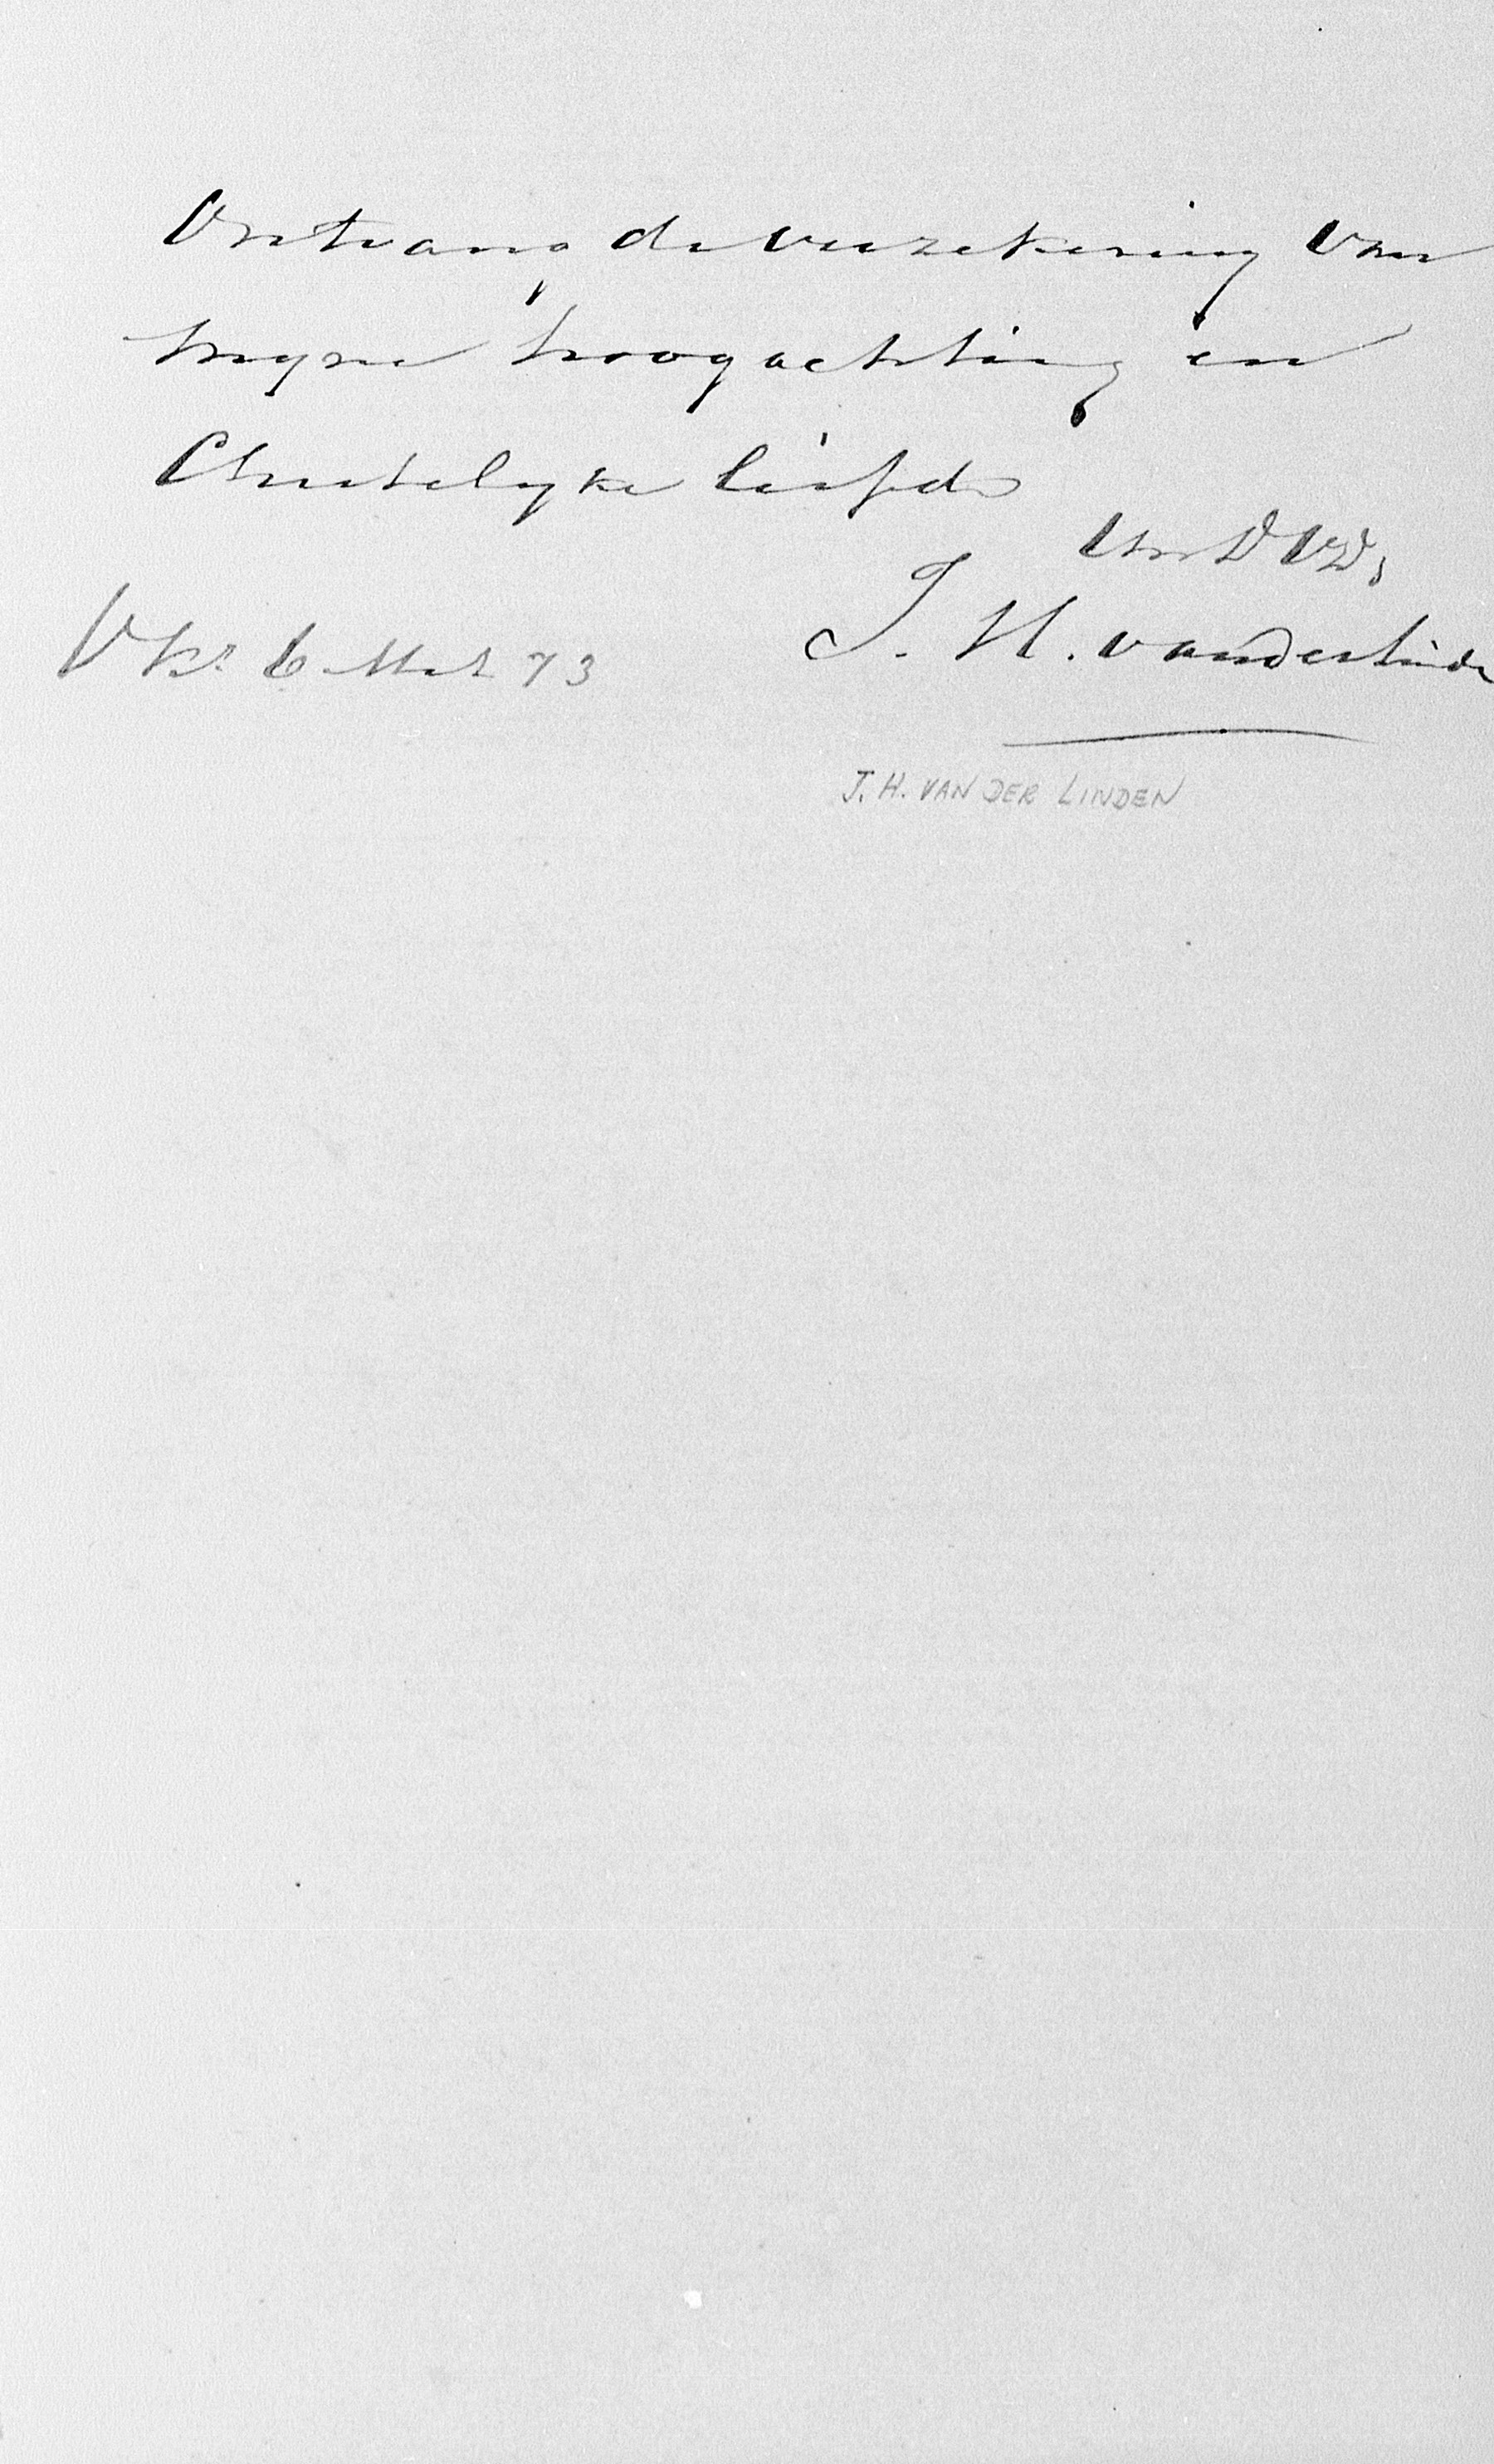 Ontvang de verzekering van
myne hoogachting en
Christelyke liefde
Uw D V D,
6 Mrt 73
J. H. vanderLinde
J. H. VAN DER LINDEN